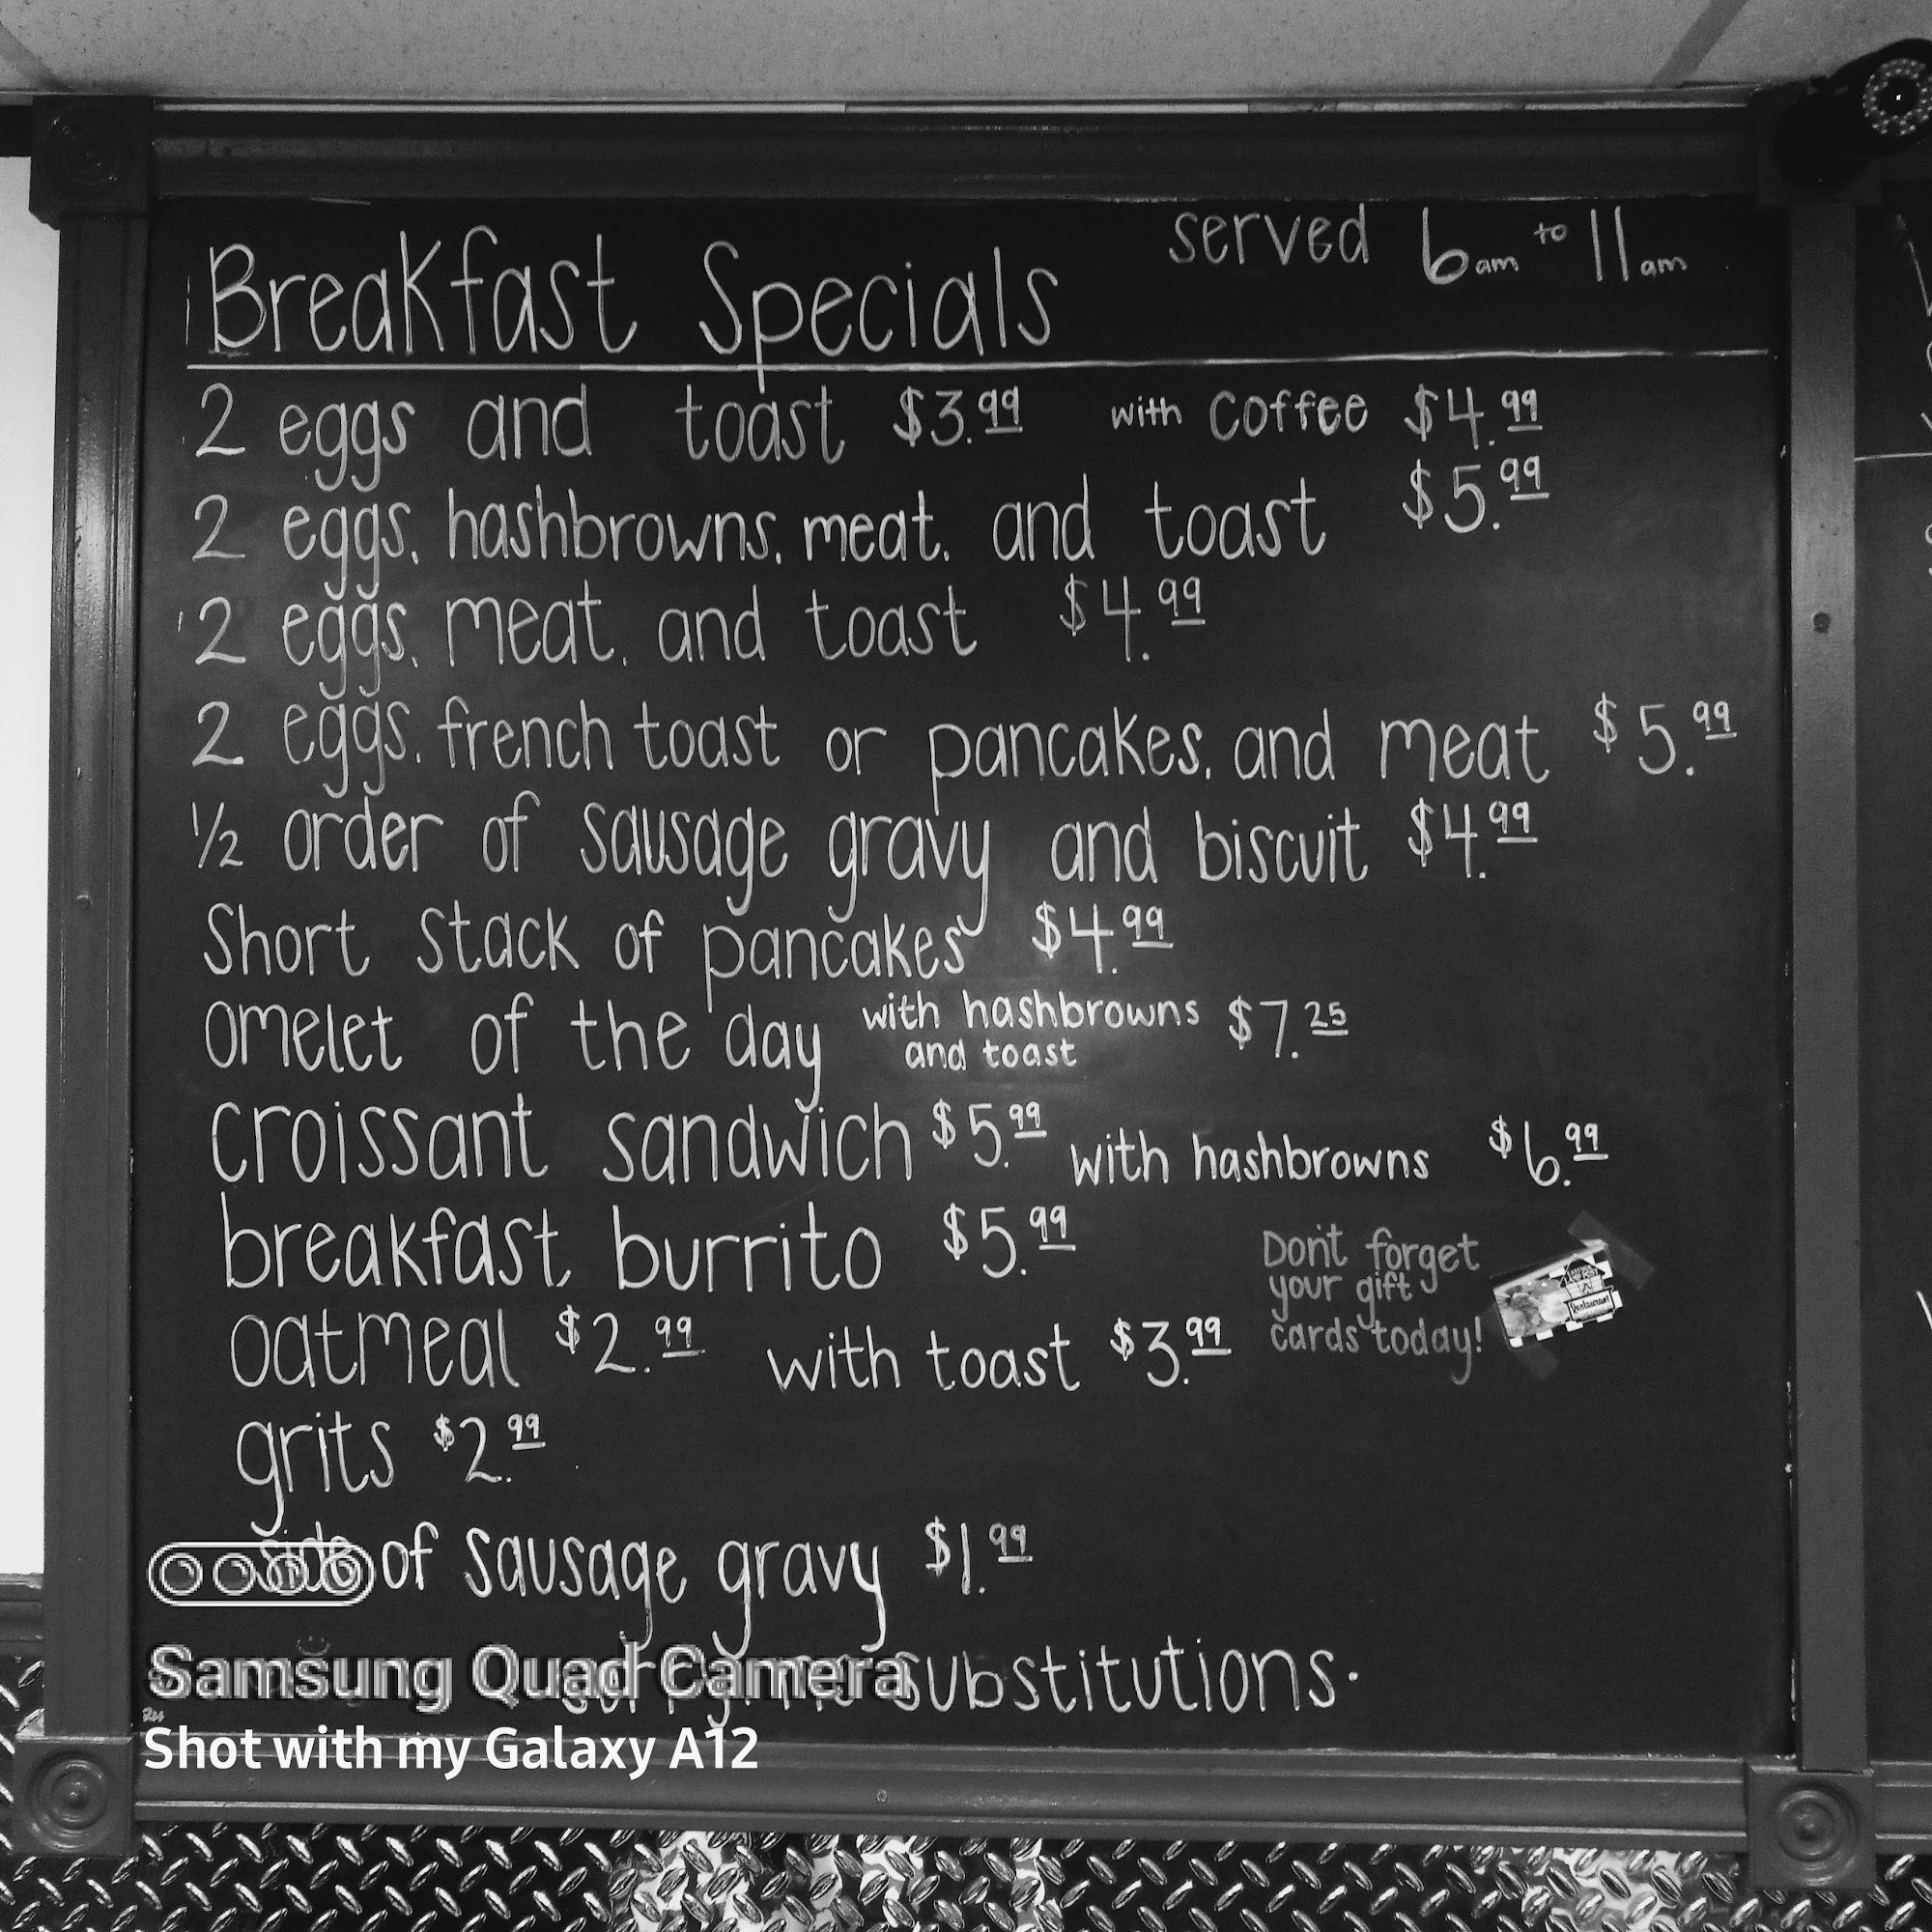 Breakfast Specials served 6am to 11am
2 eggs and toast $3.99 with coffee $4.99
2 eggs, hashbrowns, meat, and toast $5.99
2 eggs, meat, and toast $4.99
2 eggs, french toast or pancakes, and meat $5.99
1/2 order of sausage gravy and biscuit $4.99
Short stack of pancakes $4.99
omelet of the day with hashbrowns $7.25
and toast
croissant sandwich $5.99 with hashbrowns $6.99
breakfast burrito $5.99
Dont forget
your gift
cards today!
Restaurant
oatmeal $2.99 with toast $3.99
grits $2.99
side of sausage gravy $1.99
sorry no substitutions.
Samsung Quad Camera
Shot with my Galaxy A12